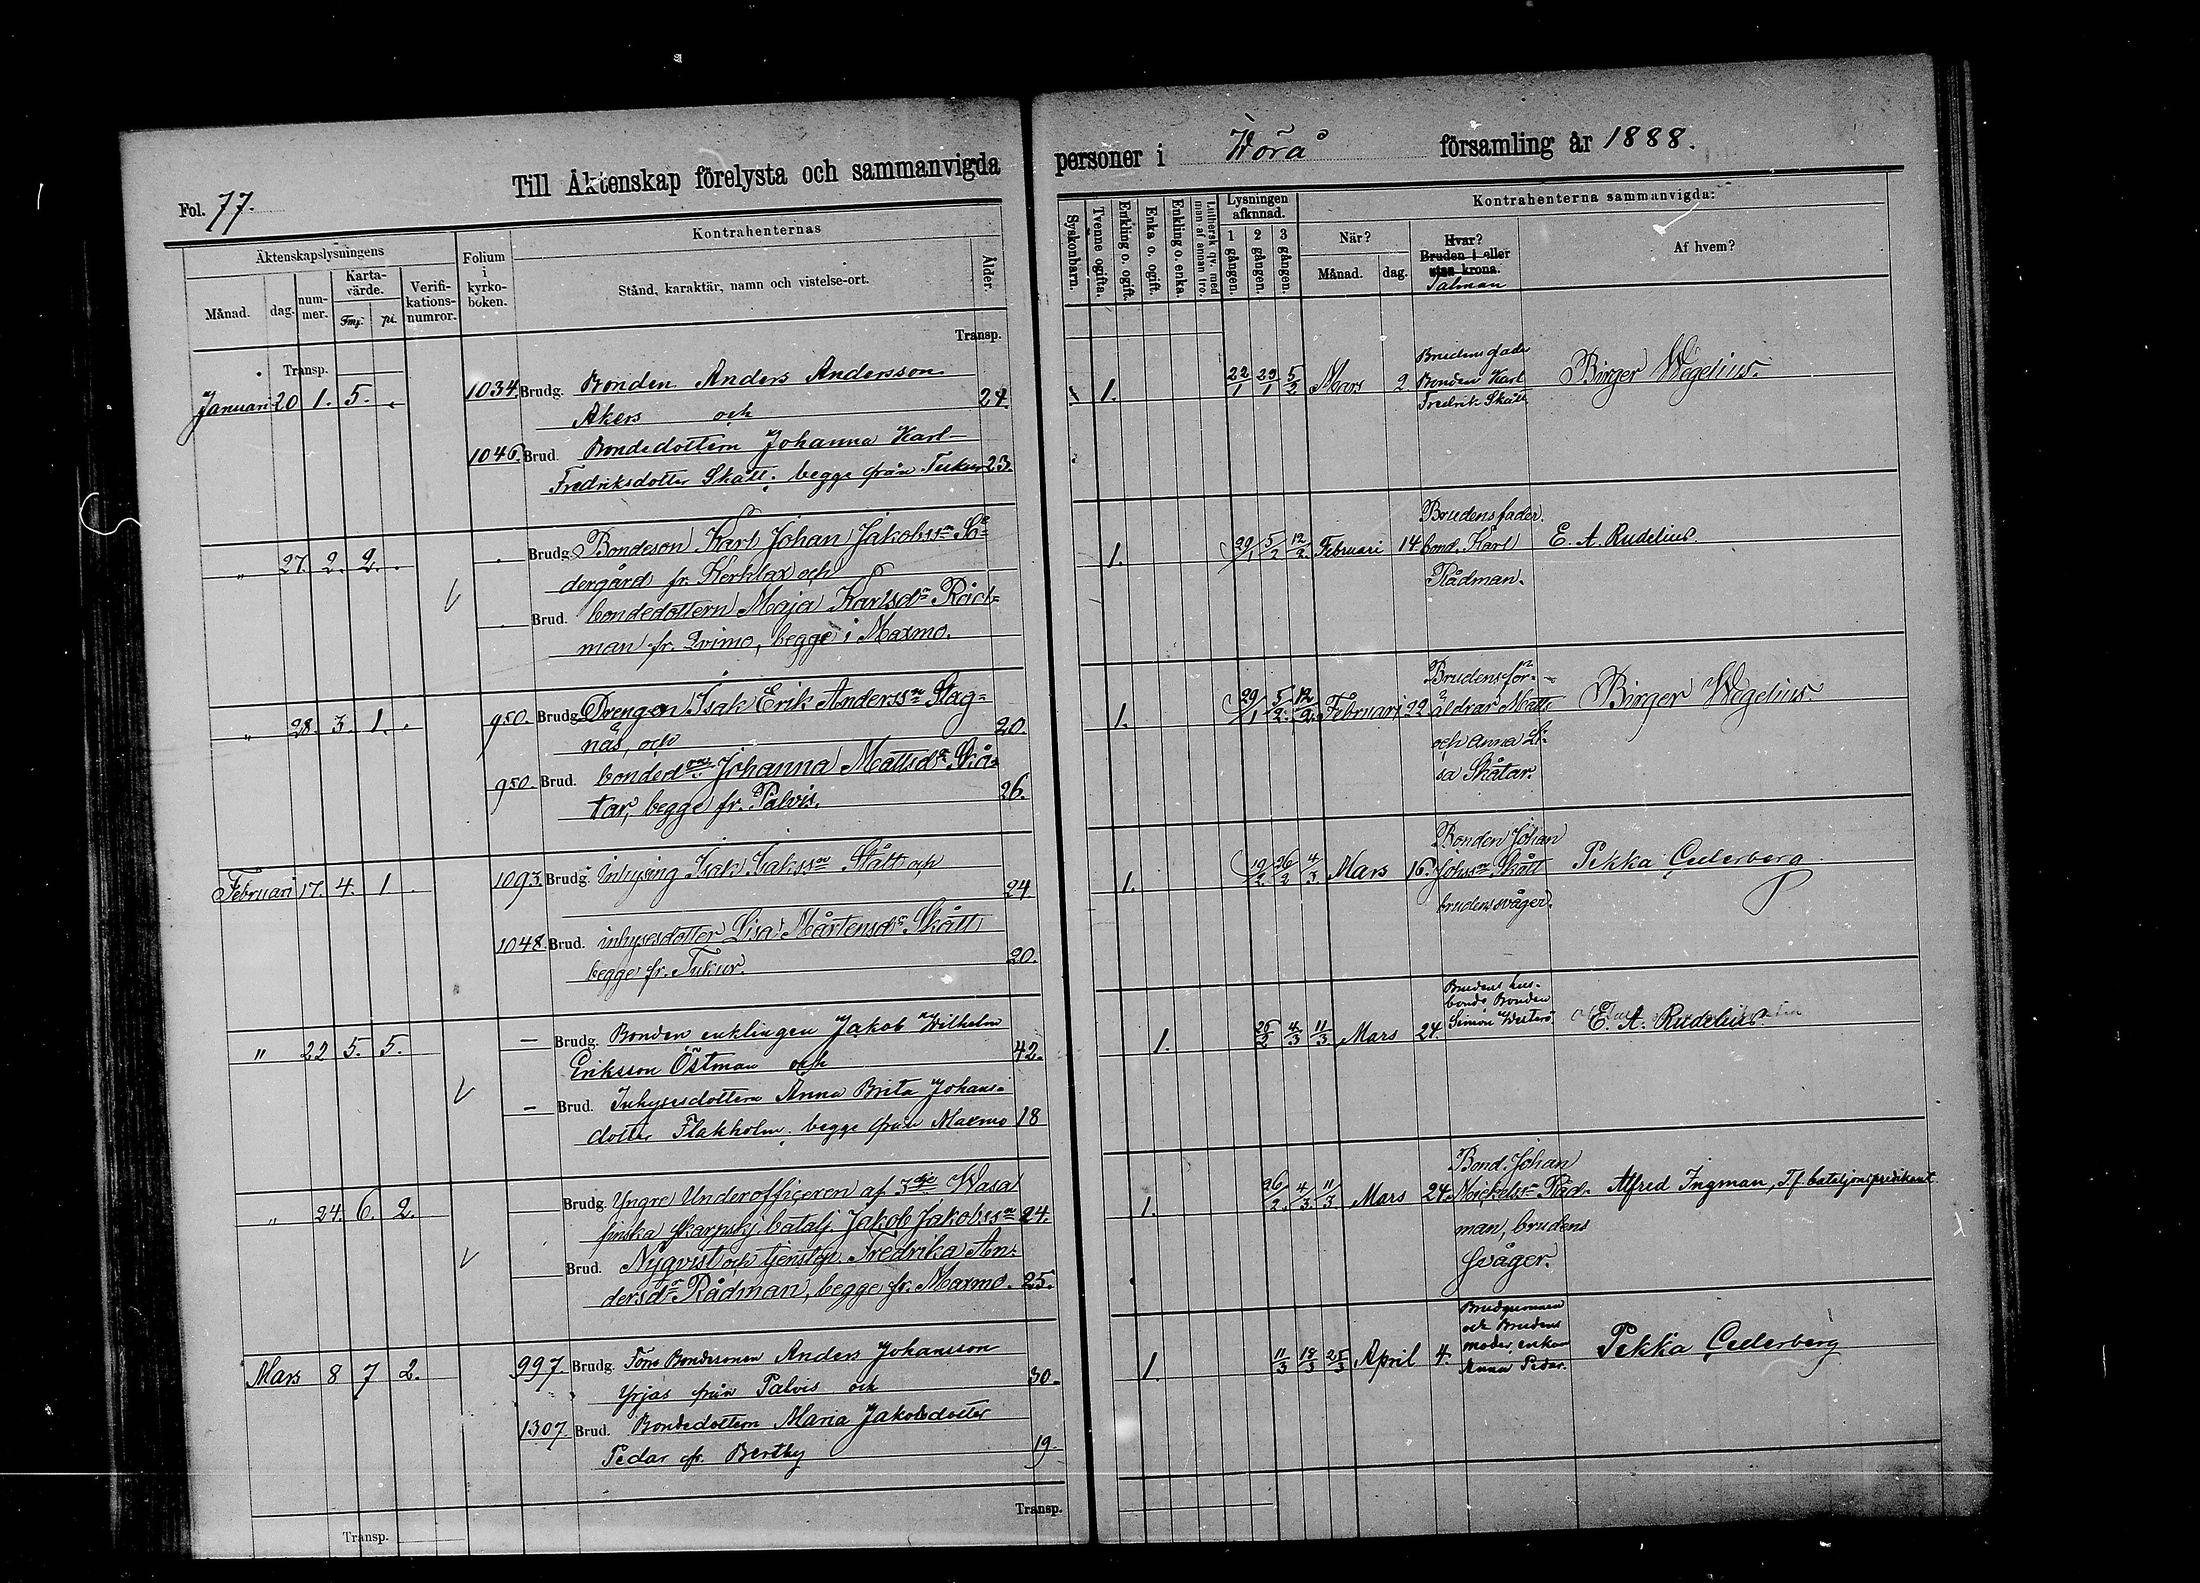 Till Äktenskap förelysta och sammanvigda
Fol. 77.
Äktenskapslysningens
Månad. dag. num-mer. Karta-värde. Fmg. pi. Verifi-kations-numror.
Folium i kyrko-boken.
Kontrahenternas
Stånd, karaktär, namn och vistelse-ort.
Ålder.
Transp.
Transp.
Januari 20 1. 5. 1034. Brudg. Bonden Anders Andersson
Akers och 24.
1046. Brud. Bondedottern Johanna Karl-
Fredriksdotter Skått; begge från Tukur 23.
" 27. 2. 2. Brudg. Bondeson Karl Johan Jakobssn Sö=
dergård fr. Kerklax och
Brud. bondedottern Maja Karlsdr Råd=
man fr. Qvimo, begge i Maxmo.
" 28. 3. 1. 950. Brudg. Drengen Isak Erik Anderssn Slag=
näs, och 20.
950. Brud. bonded Johanna Mattsdr Skå=
tar, begge fr. Palvis. 26.
Februari 17. 4. 1. 1093. Brudg. Inhysing Isak Isakssn Skått och
24.
1048. Brud. inhysesdotter Lisa Mårtensdr Skått
begge fr. Tukur. 20.
" 22 5. 5. — Brudg. Bonden enklingen Jakob Wilhelm
Eriksson Östman och 42.
— Brud. Inhysesdottern Anna Brita Johans-
dotter Flakholm, begge från Maxmo 18
" 24. 6. 2. Brudg. Yngre Underofficeren af 3dje Wasa
finska skarpskj. batalj. Jakob Jakobssn 24.
Brud. Nyqvist och tjenstep. Fredrika An-
dersdr Rådman, begge fr. Maxmo. 25.
Mars 8 7 2. 997. Brudg. Förre Bondesonen Anders Johansson
Yrjas från Palvis och 30.
1307. Brud. Bondedottern Maria Jakobsdotter
Pedar fr. Bertby 19.
Transp.
Transp.
personer i Wörå församling år 1888.
Syskonbarn. Tvenne ogifta. Enkling o. ogift. Enka o. ogift. Enkling o. enka. Luthersk qv. med man af annan tro.
Lysningen afkunnad.
1 gången. 2 gången. 3 gången.
Kontrahenterna sammanvigda:
När? Månad. dag.
Hvar? Bruden i eller utan krona.
Talman
Af hvem?
1. 22/1 29/1 5/2 Mars 2. Brudens fader
Bonden Karl
Fredrik Skått
Birger Wegelius.
1. 29/1 5/2 12/2. Februari 14. Brudens fader.
bond. Karl
Rådman.
E. A. Rudelius
1. 29/1 5/2. 12/2. Februari 22 Brudens för-
äldrar Matts
och Anna Li-
sa Skåtar.
Birger Wegelius
1. 19/2. 26/2 4/3. Mars 16. Bonden Johan
Johssn Skått
brudens svåger.
Pekka Cederberg
1. 26/2 4/3 11/3 Mars 24. Brudens hus-
bonde Bonden
Simon Westerö
E. A. Rudelius
1. 26/2. 4/3. 11/3. Mars 24 Bond. Johan
Råd-
man, brudens
svåger.
Alfred Ingman, Tf. bataljonspredikant
1. 11/3 18/3 25/3 April 4. Brudgummen
och Brudens
moder, enkan
Anna Pedar.
Pekka Cederberg